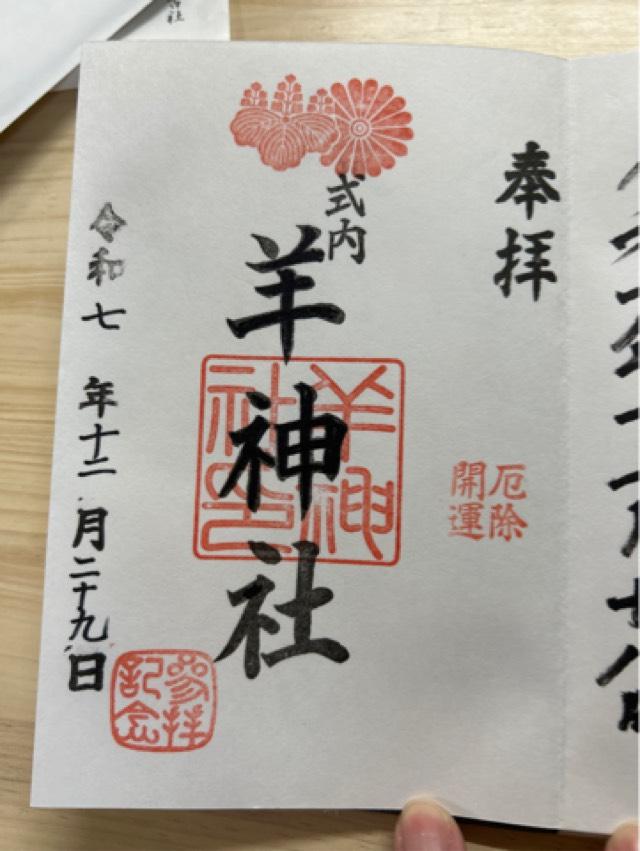 奉拝
厄除
開運
式内
羊神社
羊神社印
令和七年十二月二十九日
参拝
記念